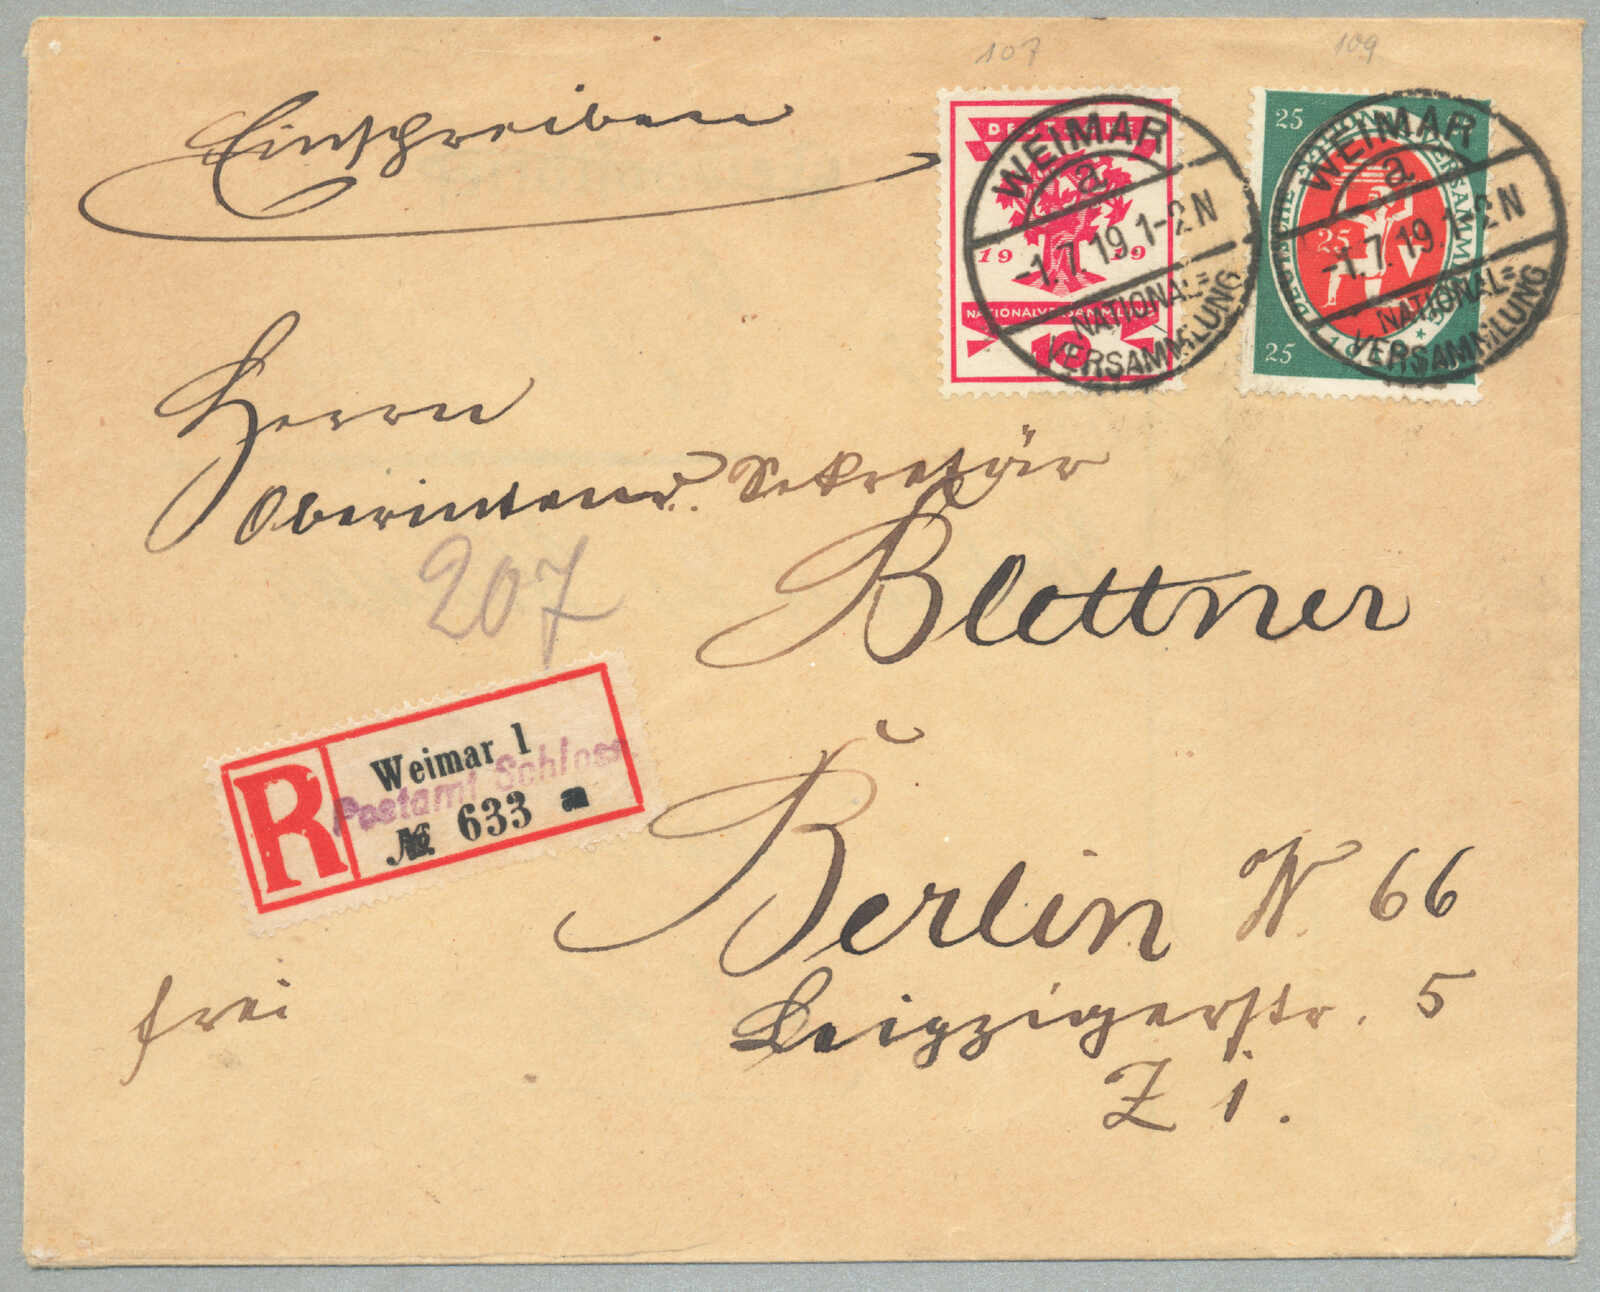 107
109
Einschreiben
DEUTSCHE
1919
NATIONALVERSAMMLUNG
10
25
DEUTSCHE NATIONALVERSAMMLUNG
1919
25
25
WEIMAR
a
-1.7.19.1-2N
NATIONAL=
VERSAMMLUNG
WEIMAR
a
-1.7.19.1-2N
NATIONAL=
VERSAMMLUNG
Herrn
Oberintend. Sekretär
Blettner
207
R
Weimar 1
Postamt Schloss
№ 633 a
Berlin W. 66
Leipzigerstr. 5
Z i.
frei